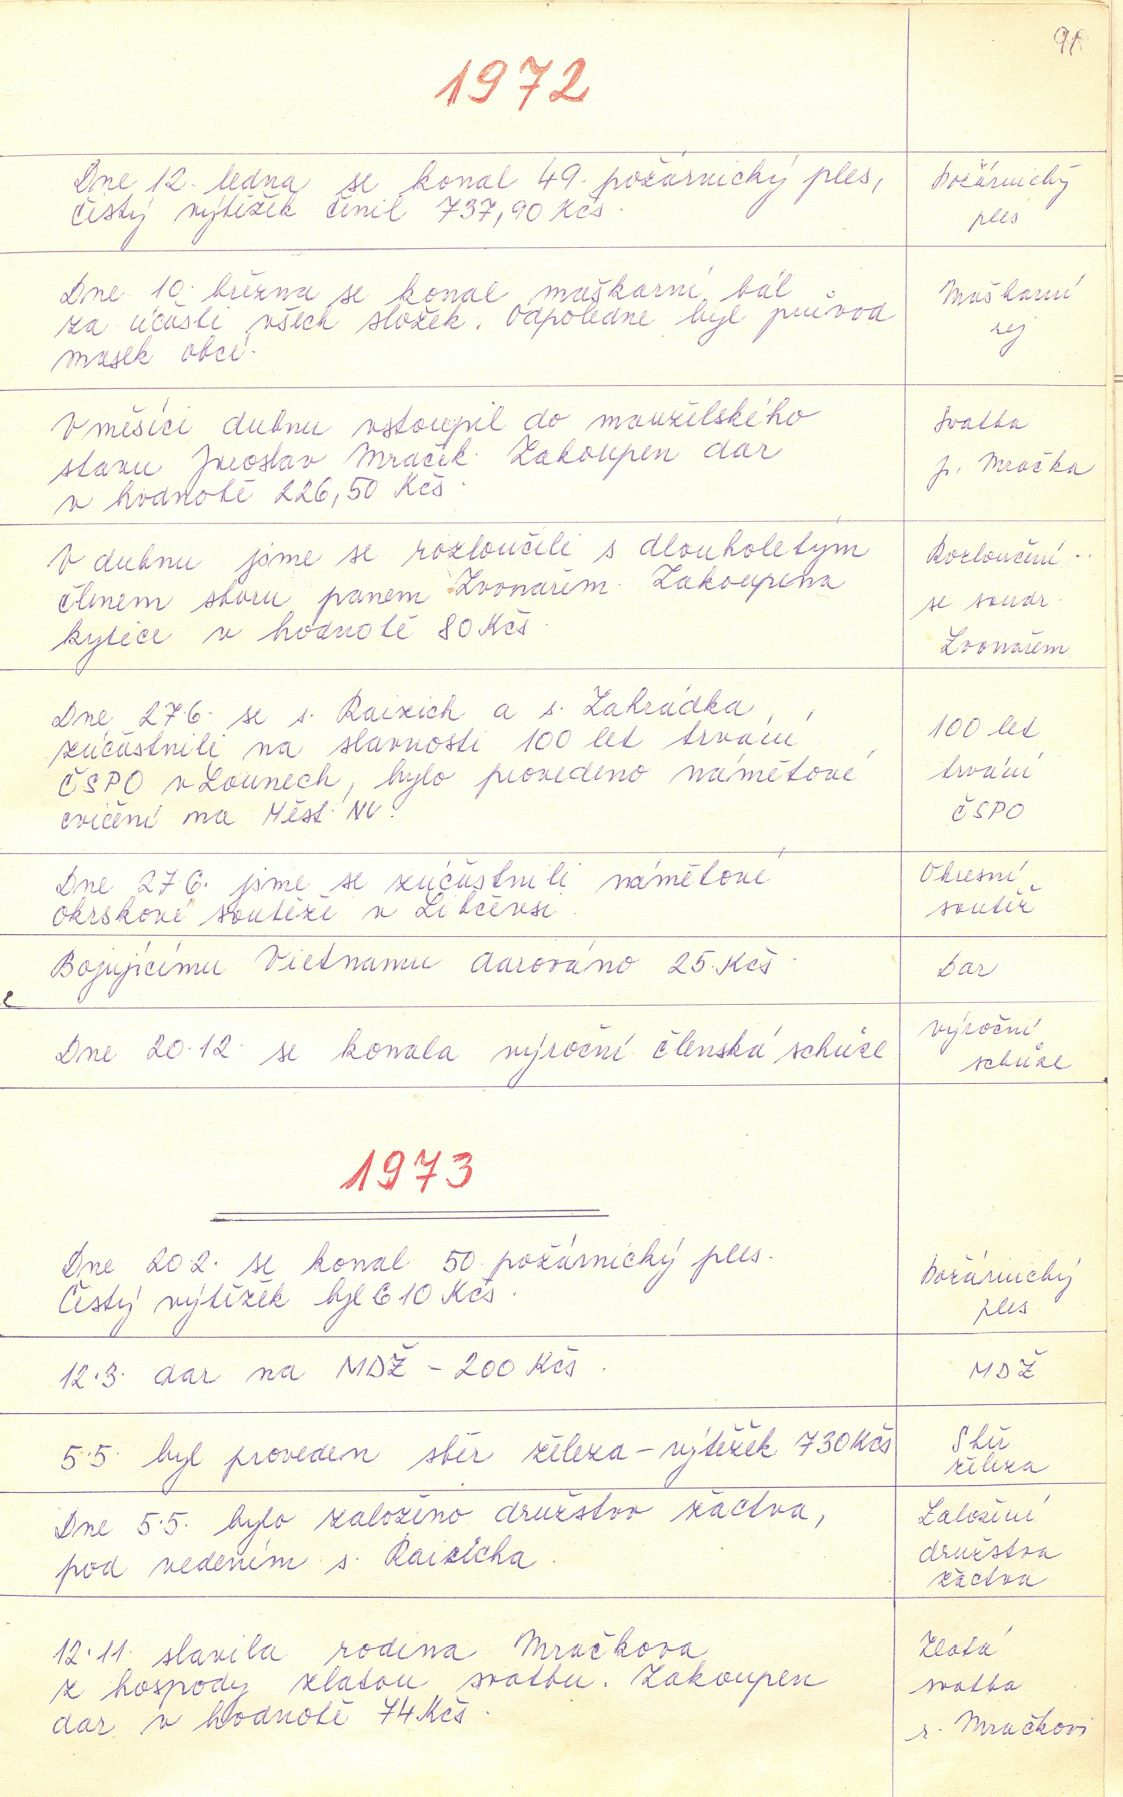 91
1972
Dne 12. ledna se konal 49. požárnický ples,
čistý výtěžek činil 737,90 Kčs.
Požárnický
ples
Dne 10. března se konal maškarní bál
za účasti všech složek. Odpoledne byl průvod
masek obcí.
Maškarní
rej
V měsíci dubnu vstoupil do manželského
stavu Jaroslav Mraček. Zakoupen dar
v hodnotě 226,50 Kčs.
Svatba
p. Mračka
V dubnu jsme se rozloučili s dlouholetým
členem sboru panem Zvonařem. Zakoupena
kytice v hodnotě 80 Kčs.
Rozloučení
se soudr.
Zvonařem
Dne 27.6. se s. Raizich a s. Zahrádka
zúčastnili na slavnosti 100 let trvání
ČSPO v Lounech, bylo provedeno námětové
cvičení na Měst. NV.
100 let
trvání
ČSPO
Dne 27.6. jsme se zúčastnili námětové
okrskové soutěže v Libčevsi.
Okresní
soutěž
Bojujícímu Vietnamu darováno 25 Kčs.
Dar
Dne 20.12. se konala výroční členská schůze
výroční
schůze
1973
Dne 20.2. se konal 50. požárnický ples.
Čistý výtěžek byl 610 Kčs.
Požárnický
ples
12.3. dar na MDŽ - 200 Kčs.
MDŽ
5.5. byl proveden sběr železa - výtěžek 730 Kčs
Sběr
železa
Dne 5.5. bylo založeno družstvo žactva,
pod vedením s. Raizicha.
Založení
družstva
žactva
12.11. slavila rodina Mračkova
z hospody zlatou svatbu. Zakoupen
dar v hodnotě 74 Kčs.
Zlatá
svatba
r. Mračkovi